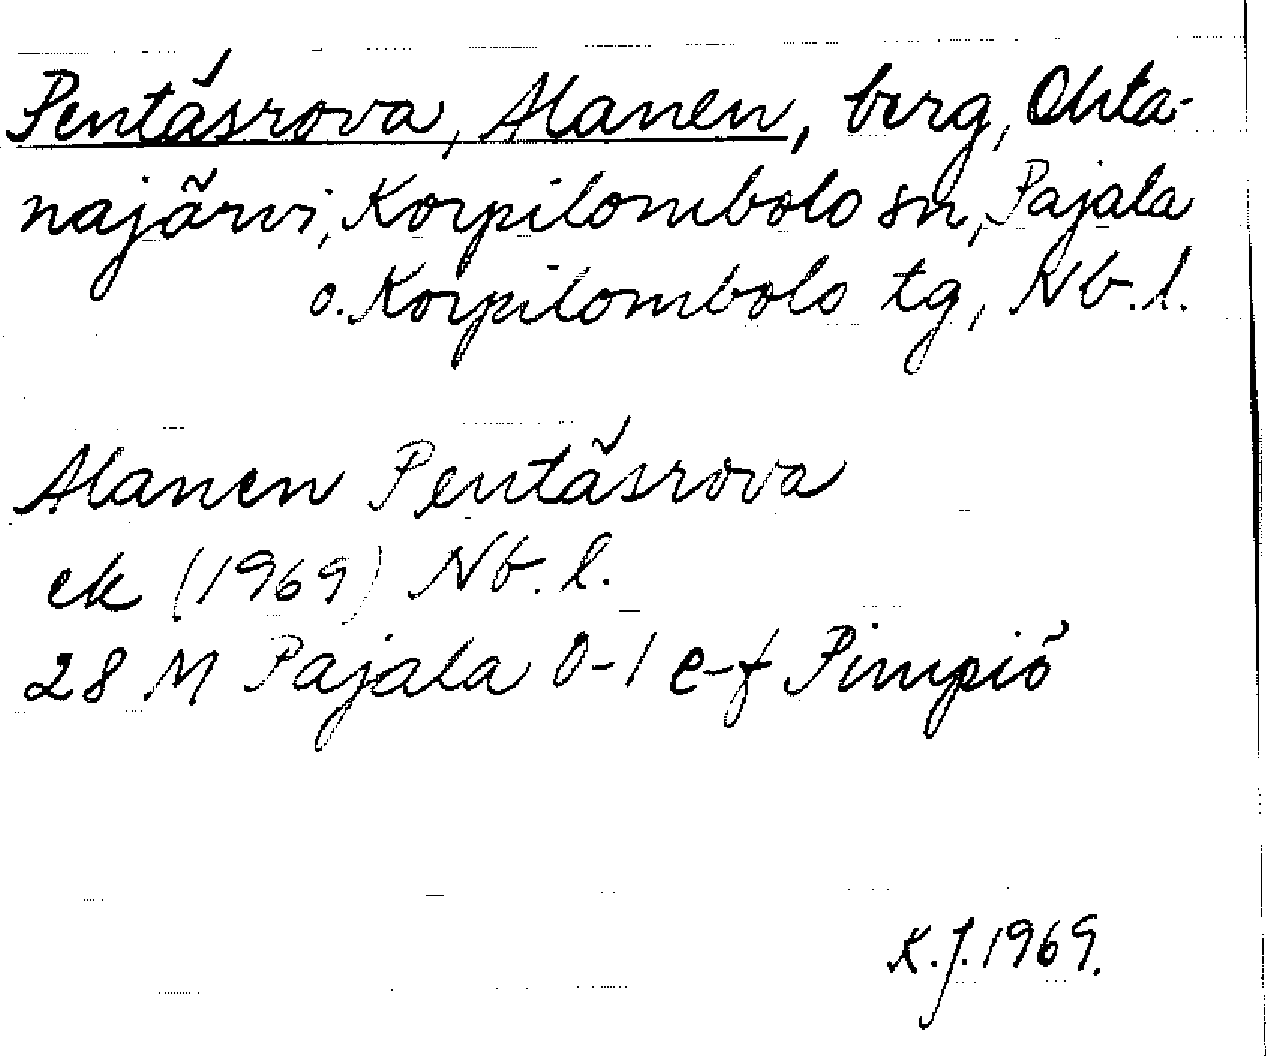 Pentäsrova, Alanen, berg, Ohta-
najärvi, Korpilombolo sn, Pajala
o. Korpilombolo tg, Nb. l.
Alanen Pentäsrova
ek (1969) Nb. l.
28 M Pajala 0-1 e-f Pimpiö
K. J. 1969.